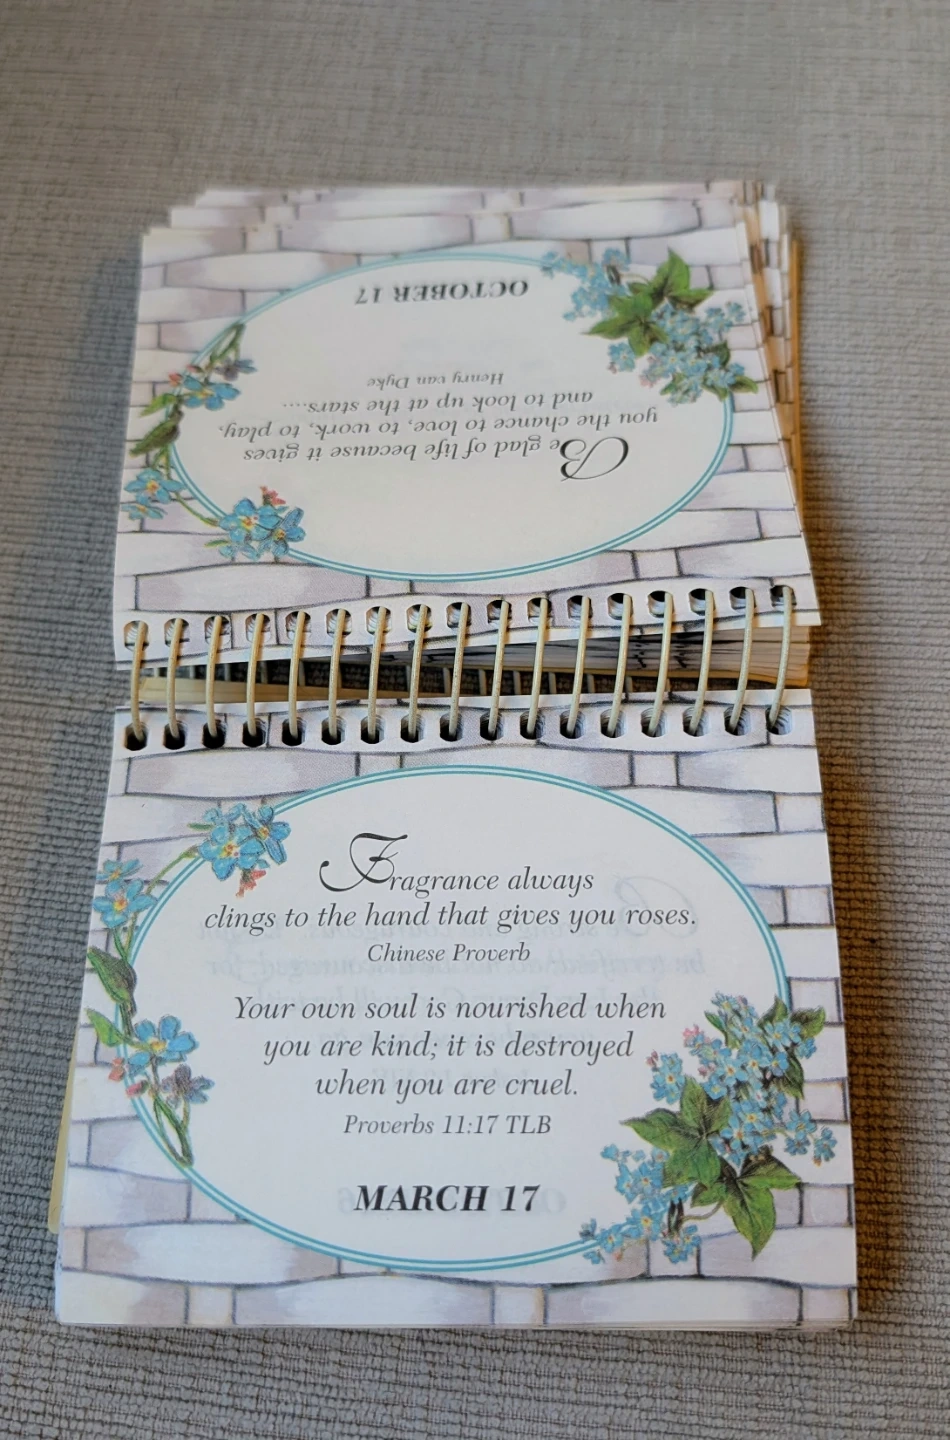 OCTOBER 17
Be glad of life because it gives
you the chance to love, to work, to play,
and to look up at the stars....
Henry van Dyke
Fragrance always
clings to the hand that gives you roses.
Chinese Proverb
Your own soul is nourished when
you are kind; it is destroyed
when you are cruel.
Proverbs 11:17 TLB
MARCH 17